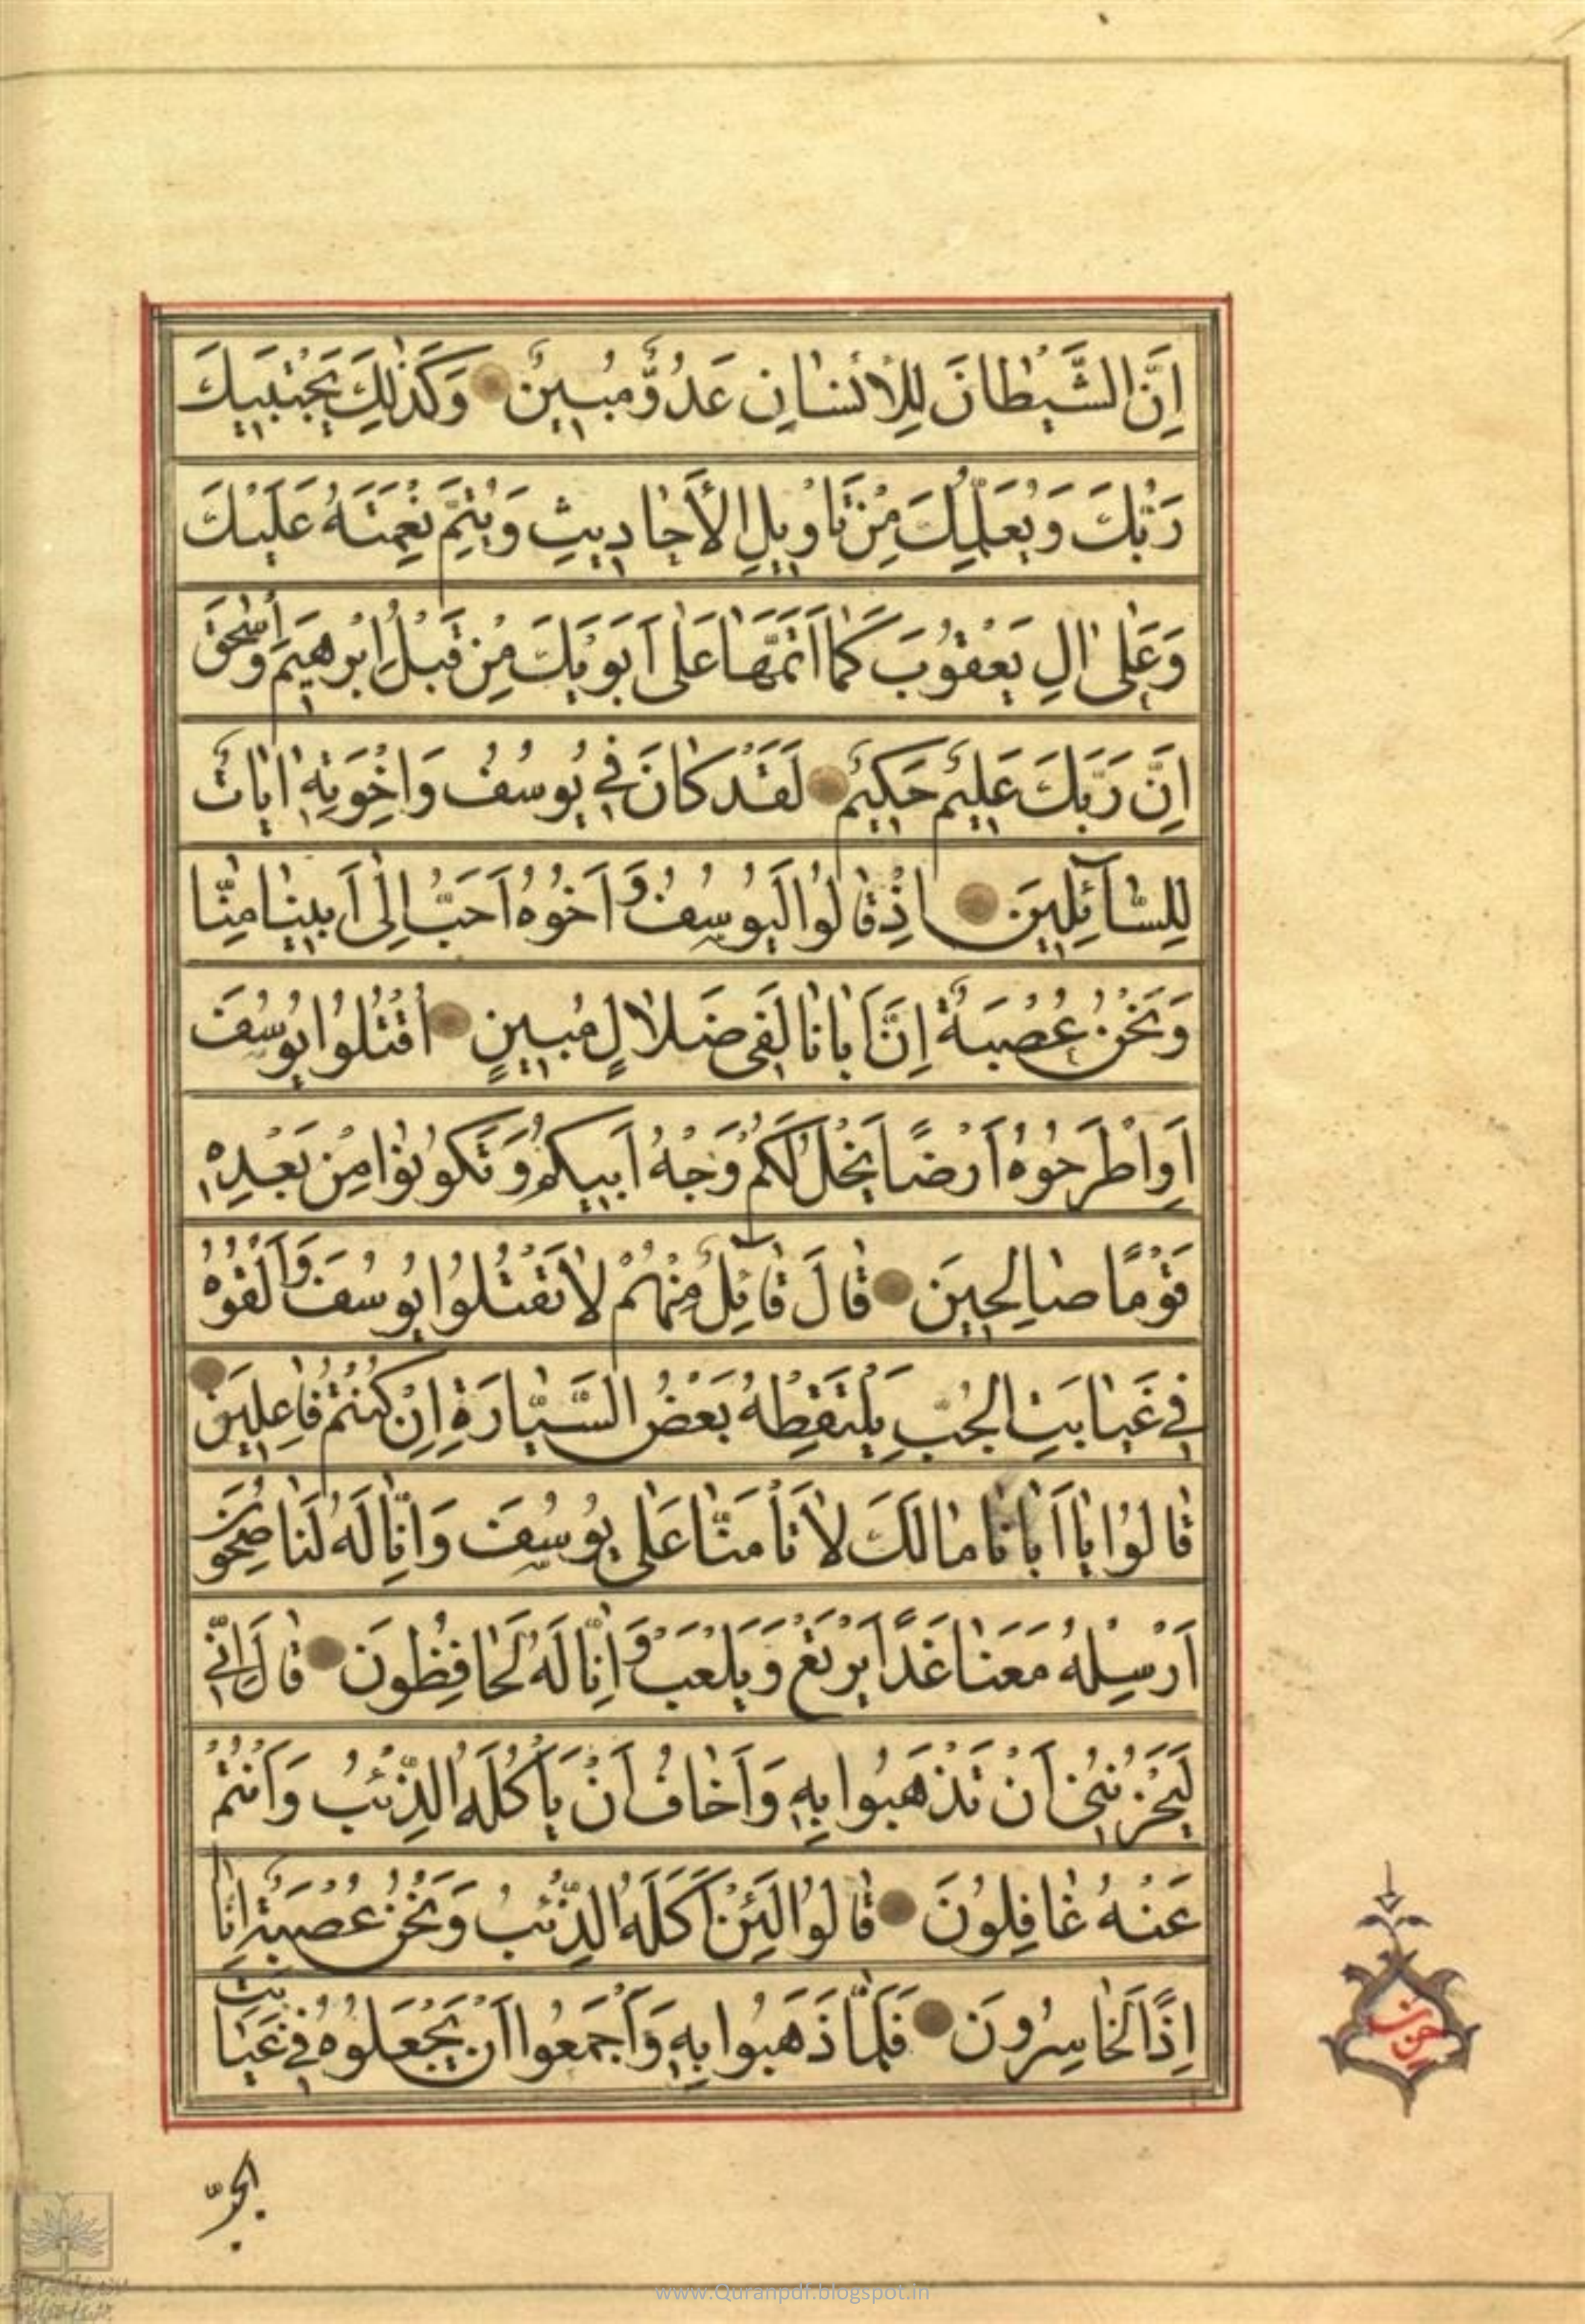 اِنَّ الشَّيْطَانَ لِلْاِنْسَانِ عَدُوٌّ مُبِينٌ وَكَذٰلِكَ يَجْتَبِيكَ
رَبُّكَ وَيُعَلِّمُكَ مِنْ تَاْوِيلِ الْاَحَادِيثِ وَيُتِمُّ نِعْمَتَهُ عَلَيْكَ
وَعَلٰى اٰلِ يَعْقُوبَ كَمَا اَتَمَّهَا عَلٰى اَبَوَيْكَ مِنْ قَبْلُ اِبْرٰهِيمَ وَاِسْحٰقَ
اِنَّ رَبَّكَ عَلِيمٌ حَكِيمٌ لَقَدْ كَانَ فِي يُوسُفَ وَاِخْوَتِهِ اٰيَاتٌ
لِلسَّآئِلِينَ اِذْ قَالُوا لَيُوسُفُ وَاَخُوهُ اَحَبُّ اِلٰى اَبِينَا مِنَّا
وَنَحْنُ عُصْبَةٌ اِنَّ اَبَانَا لَفِي ضَلَالٍ مُبِينٍ اُقْتُلُوا يُوسُفَ
اَوِ اطْرَحُوهُ اَرْضًا يَخْلُ لَكُمْ وَجْهُ اَبِيكُمْ وَتَكُونُوا مِنْ بَعْدِهِ
قَوْمًا صَالِحِينَ قَالَ قَآئِلٌ مِنْهُمْ لَا تَقْتُلُوا يُوسُفَ وَاَلْقُوهُ
فِي غَيَابَتِ الْجُبِّ يَلْتَقِطْهُ بَعْضُ السَّيَّارَةِ اِنْ كُنْتُمْ فَاعِلِينَ
قَالُوا يَا اَبَانَا مَا لَكَ لَا تَاْمَنَّا عَلٰى يُوسُفَ وَاِنَّا لَهُ لَنَاصِحُونَ
اَرْسِلْهُ مَعَنَا غَدًا يَرْتَعْ وَيَلْعَبْ وَاِنَّا لَهُ لَحَافِظُونَ قَالَ اِنِّي
لَيَحْزُنُنِي اَنْ تَذْهَبُوا بِهِ وَاَخَافُ اَنْ يَاْكُلَهُ الذِّئْبُ وَاَنْتُمْ
عَنْهُ غَافِلُونَ قَالُوا لَئِنْ اَكَلَهُ الذِّئْبُ وَنَحْنُ عُصْبَةٌ اِنَّا
اِذًا لَخَاسِرُونَ فَلَمَّا ذَهَبُوا بِهِ وَاَجْمَعُوا اَنْ يَجْعَلُوهُ فِي غَيَابَتِ
حزب
الجبّ
www.Quranpdf.blogspot.in